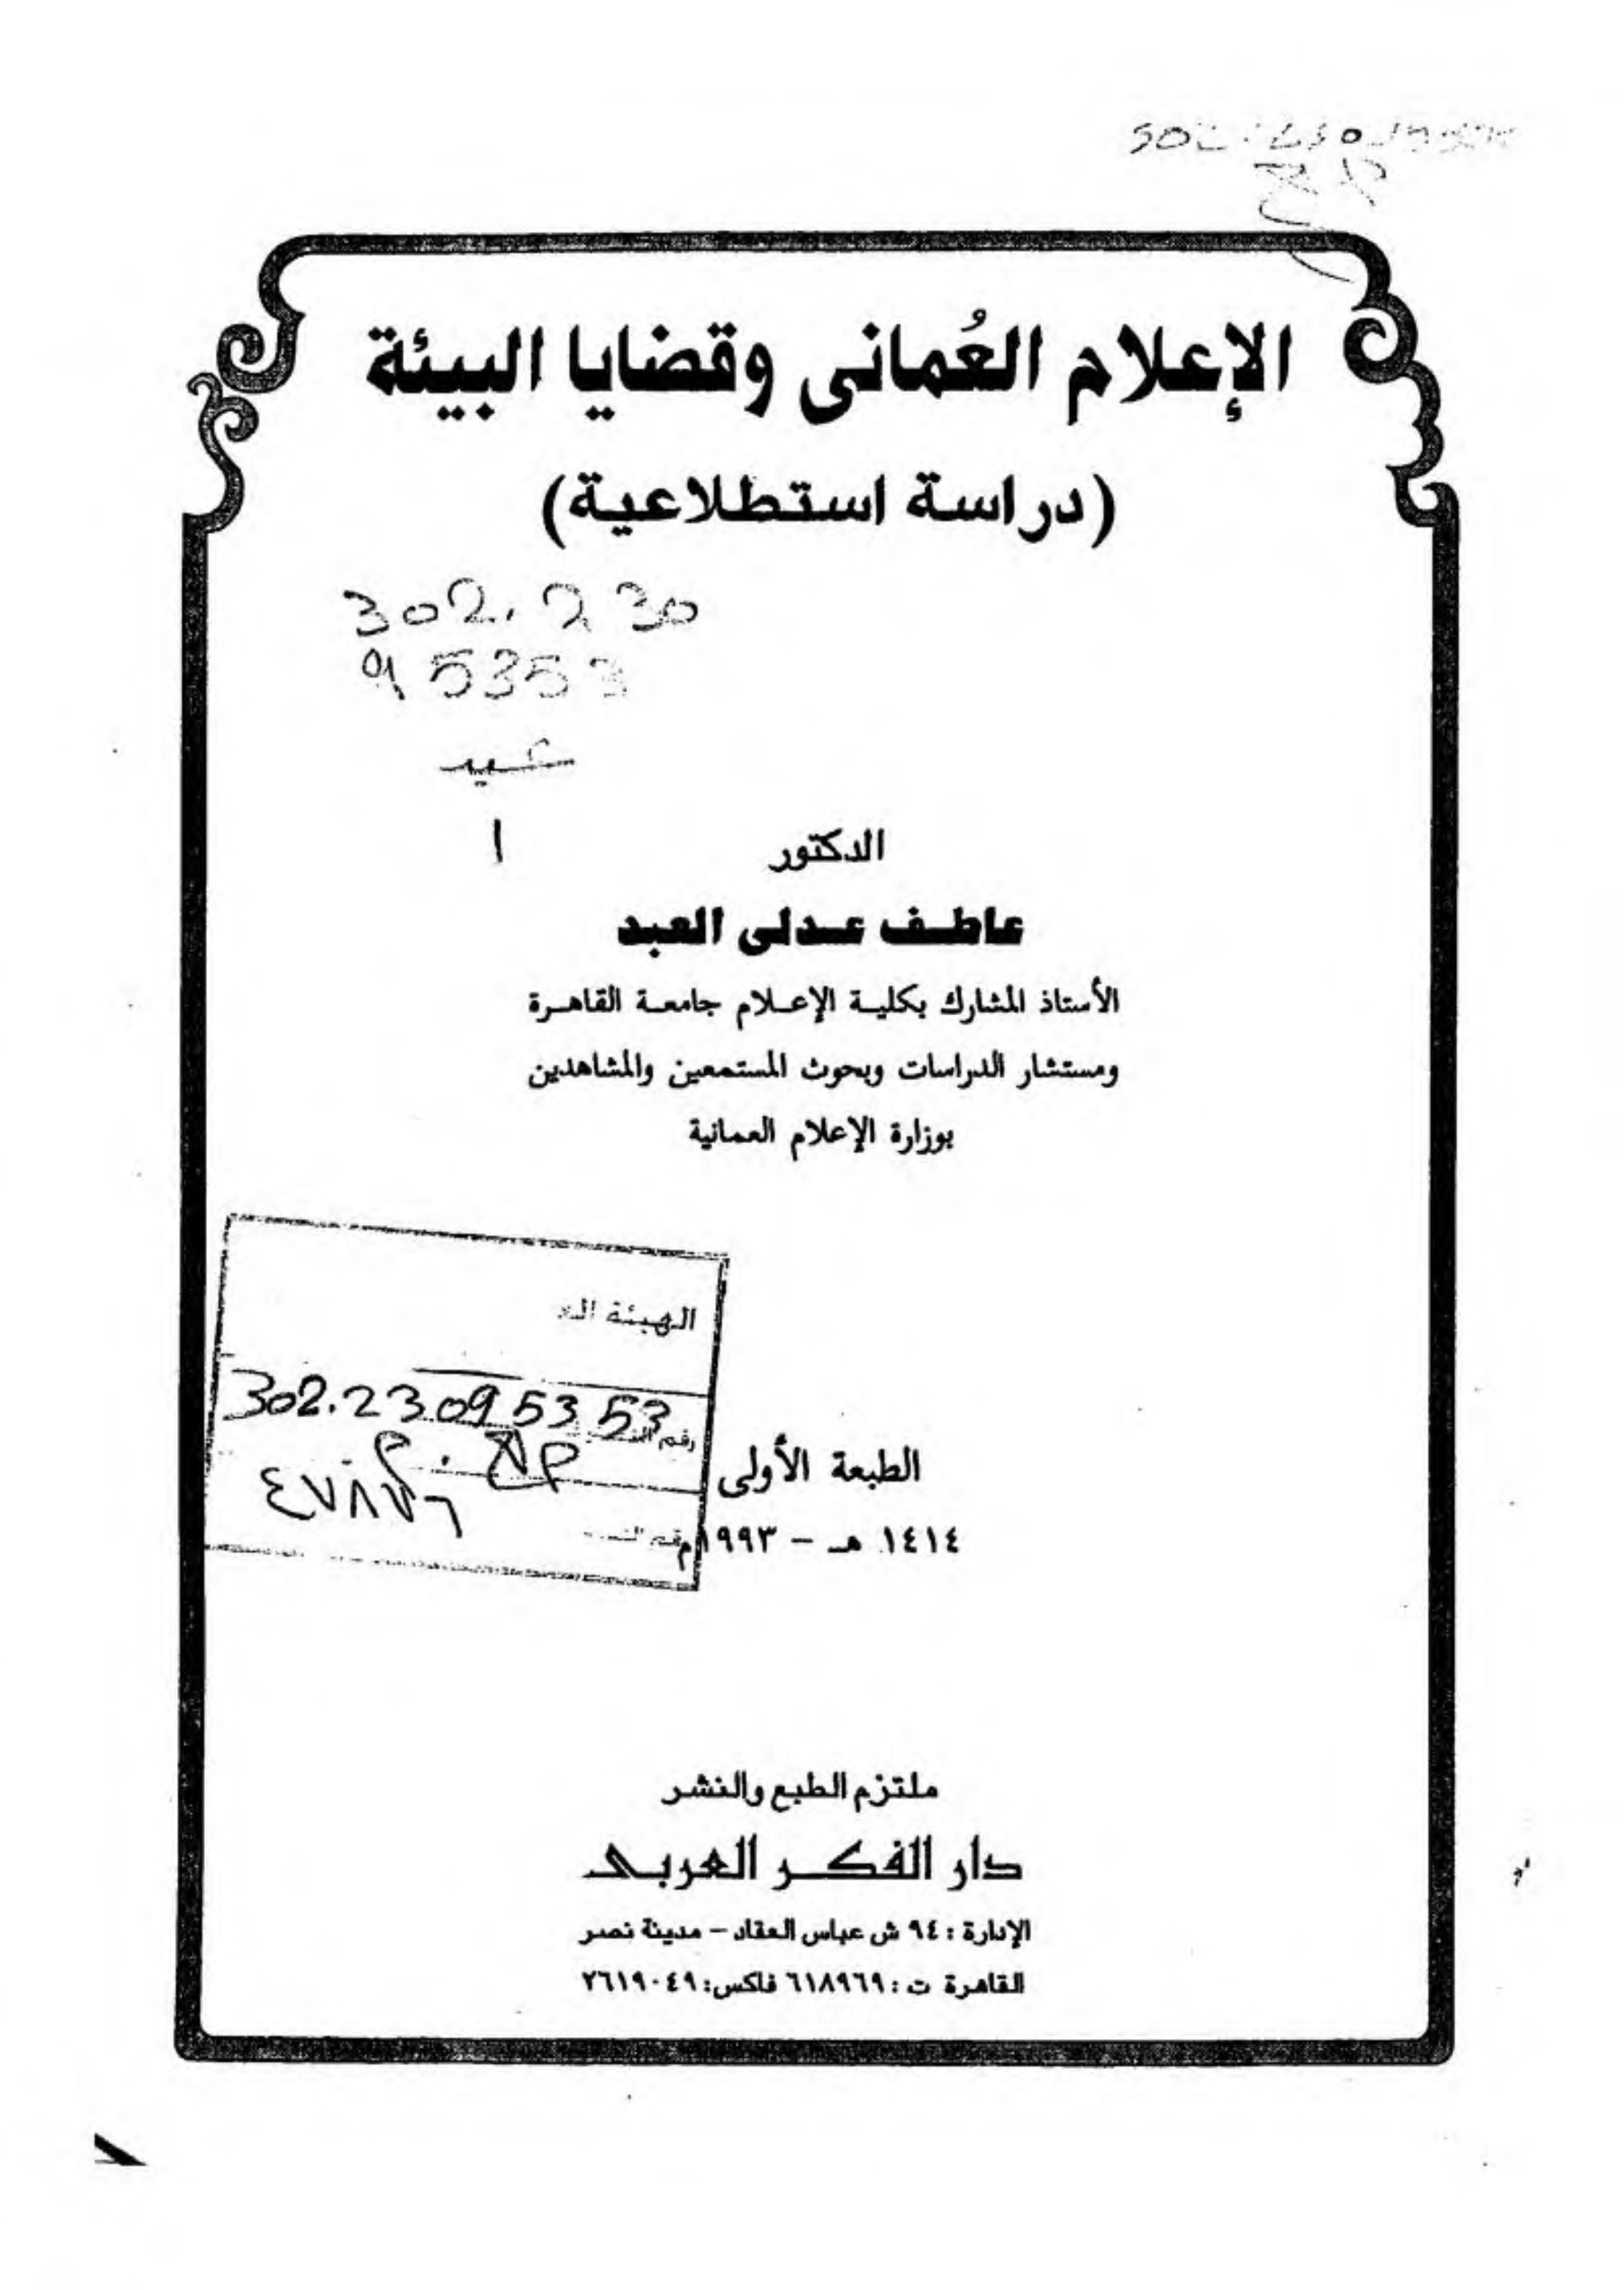 الإعلام العُمانى وقضايا البيئة
(دراسة استطلاعية)
302.230
95353
عبد
ا
الدكتور
عاطف عدلى العبد
الأستاذ المشارك بكلية الإعلام جامعة القاهرة
ومستشار الدراسات وبحوث المستمعين والمشاهدين
بوزارة الإعلام العمانية
الهيئة
302.23095353
رقم
٤٧٨٧٦
الطبعة الأولى
١٤١٤ هـ - ١٩٩٣م
ملتزم الطبع والنشر
دار الفكر العربى
الإدارة : ٩٤ ش عباس العقاد - مدينة نصر
القاهرة ت : ٦١٨٩٦٩ فاكس: ٢٦١٩٠٤٩